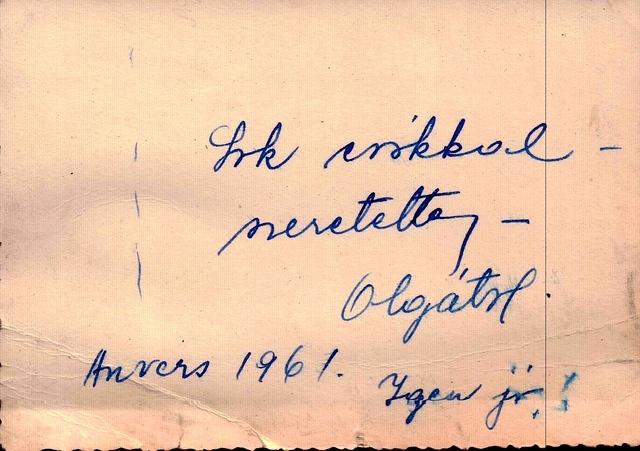 Sok csókkal -
szeretettel -
Olgától.
Anvers 1961.
Igen jó!